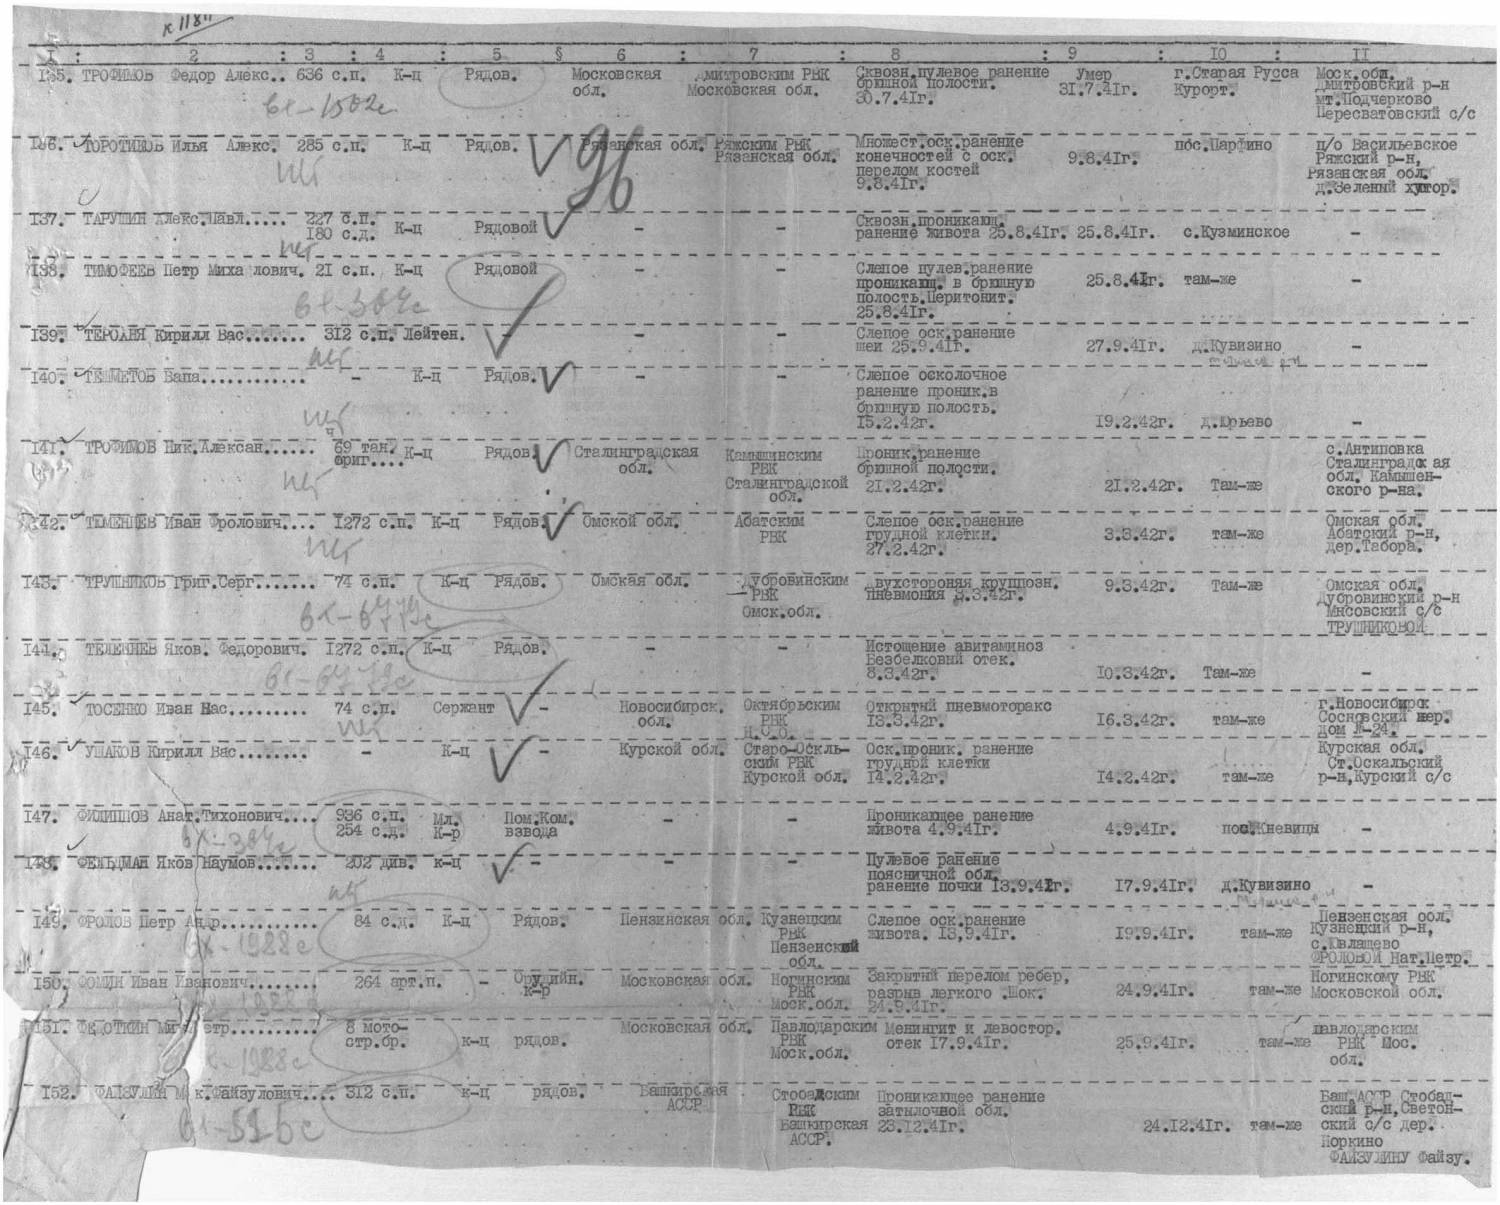 к 11811
I : 2 : 3 : 4 : 5 § 6 : 7 : 8 : 9 : IO : II
I35. ТРОФИМОВ Федор Алекс.. 636 с.п. К-ц Рядов. Московская обл. Дмитровским РВК Московская обл. Сквозн.пулевое ранение брюшной полости. 30.7.4Iг. Умер 3I.7.4Iг. г.Старая Русса Курорт. Моск.обл. Дмитровский р-н мт.Подчерково Пересватовский с/с
вх-1502с
I36. ТОРОТИКОВ Илья Алекс. 285 с.п. К-ц Рядов. Рязанская обл. Ряжским РВК Рязанская обл. Множест.оск.ранение конечностей с оск. перелом костей 9.8.4Iг. 9.8.4Iг. пос.Парфино п/о Васильевское Ряжский р-н, Рязанская обл. д.Зеленый хутор.
нет
96
I37. ТАРУШИН Алекс.Павл..... 227 с.п. I80 с.д. К-ц Рядовой - - Сквозн.проникающ. ранение живота 25.8.4Iг. 25.8.4Iг. с.Кузминское -
нет
I38. ТИМОФЕЕВ Петр Миха лович. 2I с.п. К-ц Рядовой - - Слепое пулев.ранение проникающ. в брюшную полость.Перитонит. 25.8.4Iг. 25.8.4Iг. там-же -
вх-304с
I39. ТЕРОАНЯ Кирилл Вас....... 3I2 с.п. Лейтен. - - Слепое оск.ранение шеи 25.9.4Iг. 27.9.4Iг. д.Кувизино -
нет
I40. ТЕШМЕТОВ Вапа............ - К-ц Рядов. - - Слепое осколочное ранение проник.в брюшную полость. I5.2.42г. I9.2.42г. д.Юрьево -
нет
I4I. ТРОФИМОВ Ник.Алексан...... 69 тан. бриг.... К-ц Рядов. Сталинградская обл. Камышинским РВК Сталинградской обл. Проник.ранение брюшной полости. 2I.2.42г. 2I.2.42г. Там-же с.Антиповка Сталинградск ая обл. Камышен- ского р-на.
нет
I42. ТЕМЕНЦЕВ Иван Фролович.... I272 с.п. К-ц Рядов. Омской обл. Абатским РВК Слепое оск.ранение грудной клетки. 27.2.42г. 3.3.42г. там-же Омская обл. Абатский р-н, дер.Табора.
нет
I43. ТРУШНИКОВ Григ.Серг....... 74 с.п. К-ц Рядов. Омская обл. Дубровинским РВК Омск.обл. Двухстороняя крупозн. пневмония 8.3.42г. 9.3.42г. Там-же Омская обл. Дубровинский р-н Мнсовский с/с ТРУШНИКОВОЙ
вх-6779с
I44. ТЕЛЕННЕВ Яков. Федорович. I272 с.п. К-ц Рядов. - - Истощение авитаминоз Безбелковый отек. 8.3.42г. I0.3.42г. Там-же -
вх-6779с
I45. ТОСЕНКО Иван Вас......... 74 с.п. Сержант - Новосибирск. обл. Октябрьским РВК Н.С.О. Открытый пневмоторакс I3.3.42г. I6.3.42г. там-же г.Новосибирск Сосновский пер. дом №-24.
нет
I46. УШАКОВ Кирилл Вас........ - К-ц - Курской обл. Старо-Оскль- ским РВК Курской обл. Оск.проник. ранение грудной клетки I4.2.42г. I4.2.42г. там-же Курская обл. Ст.Оскальский р-н,Курский с/с
I47. ФИЛИППОВ Анат.Тихонович.... 936 с.п. 254 с.д. Мл. К-р Пом.Ком. взвода - - Проникающее ранение живота 4.9.4Iг. 4.9.4Iг. пос.Кневицы -
вх-304с
I48. ФЕЛЬДМАН Яков Наумов....... 202 див. к-ц - - - Пулевое ранение поясничной обл. ранение почки I3.9.4Iг. I7.9.4Iг. д.Кувизино -
нет
I49. ФРОЛОВ Петр Андр.......... 84 с.д. К-ц Рядов. Пензинская обл. Кузнецким РВК Пензенский обл. Слепое оск.ранение живота. I3,9.4Iг. I9.9.4Iг. там-же Пензенская обл. Кузнецкий р-н, с.Евлашево ФРОЛОВОЙ Нат.Петр.
вх-1988с
I50. ФОМИН Иван Иванович....... 264 арт.п. - Орудийн. к-р Московская обл. Ногинским РВК Моск.обл. Закрытый перелом ребер, разрыв легкого .Шок. 24.9.4Iг. 24.9.4Iг. там-же Ногинскому РВК Московской обл.
вх-1988с
I5I. ФЕДОТКИН Ми етр.......... 8 мото- стр.бр. к-ц рядов. Московская обл. Павлодарским РВК Моск.обл. Менингит к левостор. отек I7.9.4Iг. 25.9.4Iг. там-же Павлодарским РВК Мос. обл.
х-1988с
I52. ФАЙЗУЛИН М к.Файзулович.... 3I2 с.п. к-ц рядов. Башкирская АССР Стобадским РВК Башкирская АССР. Проникающее ранение затылочной обл. 23.I2.4Iг. 24.I2.4Iг. там-же Баш.АССР Стобад- ский р-н,Светон- ский с/с дер. Норкино ФАЙЗУЛИНУ Файзу.
вх-516с